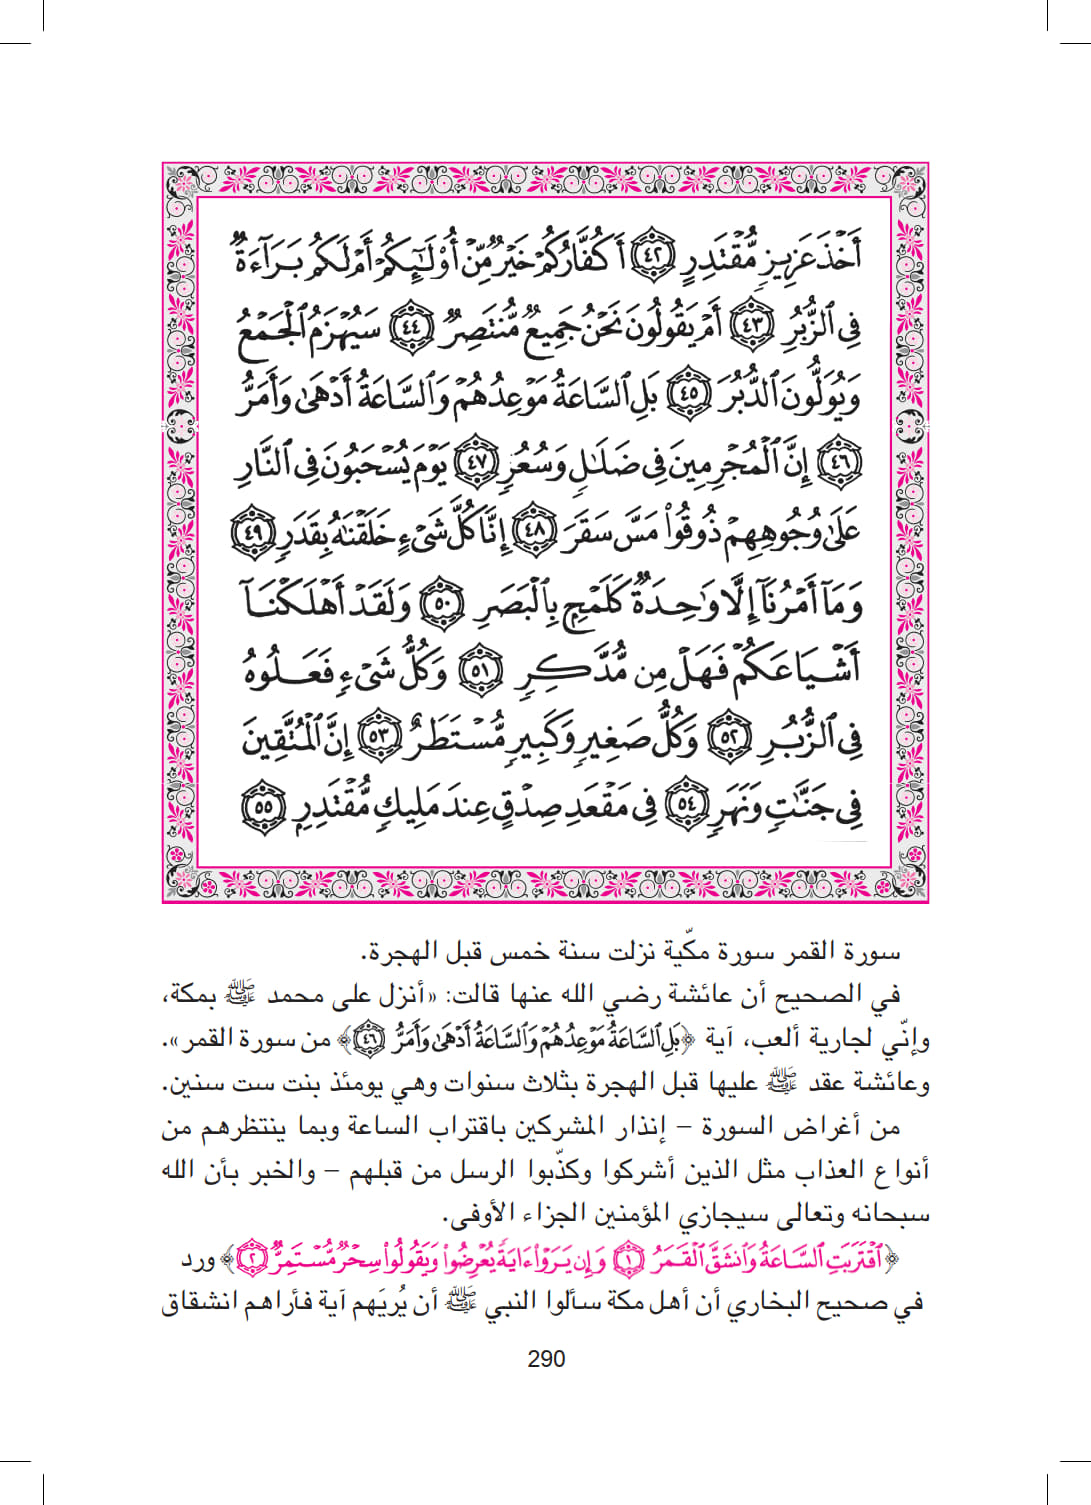 أَخْذَ عَزِيزٍ مُّقْتَدِرٍ ﴿٤٢﴾ أَكُفَّارُكُمْ خَيْرٌ مِّنْ أُوْلَـٰٓئِكُمْ أَمْ لَكُم بَرَآءَةٌ
فِى ٱلزُّبُرِ ﴿٤٣﴾ أَمْ يَقُولُونَ نَحْنُ جَمِيعٌ مُّنتَصِرٌ ﴿٤٤﴾ سَيُهْزَمُ ٱلْجَمْعُ
وَيُوَلُّونَ ٱلدُّبُرَ ﴿٤٥﴾ بَلِ ٱلسَّاعَةُ مَوْعِدُهُمْ وَٱلسَّاعَةُ أَدْهَىٰ وَأَمَرُّ
﴿٤٦﴾ إِنَّ ٱلْمُجْرِمِينَ فِى ضَلَـٰلٍ وَسُعُرٍ ﴿٤٧﴾ يَوْمَ يُسْحَبُونَ فِى ٱلنَّارِ
عَلَىٰ وُجُوهِهِمْ ذُوقُواْ مَسَّ سَقَرَ ﴿٤٨﴾ إِنَّا كُلَّ شَىْءٍ خَلَقْنَـٰهُ بِقَدَرٍ ﴿٤٩﴾
وَمَآ أَمْرُنَآ إِلَّا وَٰحِدَةٌ كَلَمْحٍ بِٱلْبَصَرِ ﴿٥٠﴾ وَلَقَدْ أَهْلَكْنَآ
أَشْيَاعَكُمْ فَهَلْ مِن مُّدَّكِرٍ ﴿٥١﴾ وَكُلُّ شَىْءٍ فَعَلُوهُ
فِى ٱلزُّبُرِ ﴿٥٢﴾ وَكُلُّ صَغِيرٍ وَكَبِيرٍ مُّسْتَطَرٌ ﴿٥٣﴾ إِنَّ ٱلْمُتَّقِينَ
فِى جَنَّـٰتٍ وَنَهَرٍ ﴿٥٤﴾ فِى مَقْعَدِ صِدْقٍ عِندَ مَلِيكٍ مُّقْتَدِرٍ ﴿٥٥﴾
سورة القمر سورة مكّية نزلت سنة خمس قبل الهجرة.
في الصحيح أن عائشة رضي الله عنها قالت: «أنزل على محمد ﷺ بمكة،
وإنّي لجارية ألعب، آية ﴿بَلِ ٱلسَّاعَةُ مَوْعِدُهُمْ وَٱلسَّاعَةُ أَدْهَىٰ وَأَمَرُّ ٤٦﴾ من سورة القمر».
وعائشة عقد ﷺ عليها قبل الهجرة بثلاث سنوات وهي يومئذ بنت ست سنين.
من أغراض السورة – إنذار المشركين باقتراب الساعة وبما ينتظرهم من
أنواع العذاب مثل الذين أشركوا وكذّبوا الرسل من قبلهم – والخبر بأن الله
سبحانه وتعالى سيجازي المؤمنين الجزاء الأوفى.
﴿ٱقْتَرَبَتِ ٱلسَّاعَةُ وَٱنشَقَّ ٱلْقَمَرُ ١ وَإِن يَرَوْاْ ءَايَةً يُعْرِضُواْ وَيَقُولُواْ سِحْرٌ مُّسْتَمِرٌّ ٢﴾ ورد
في صحيح البخاري أن أهل مكة سألوا النبي ﷺ أن يُريَهم آية فأراهم انشقاق
290